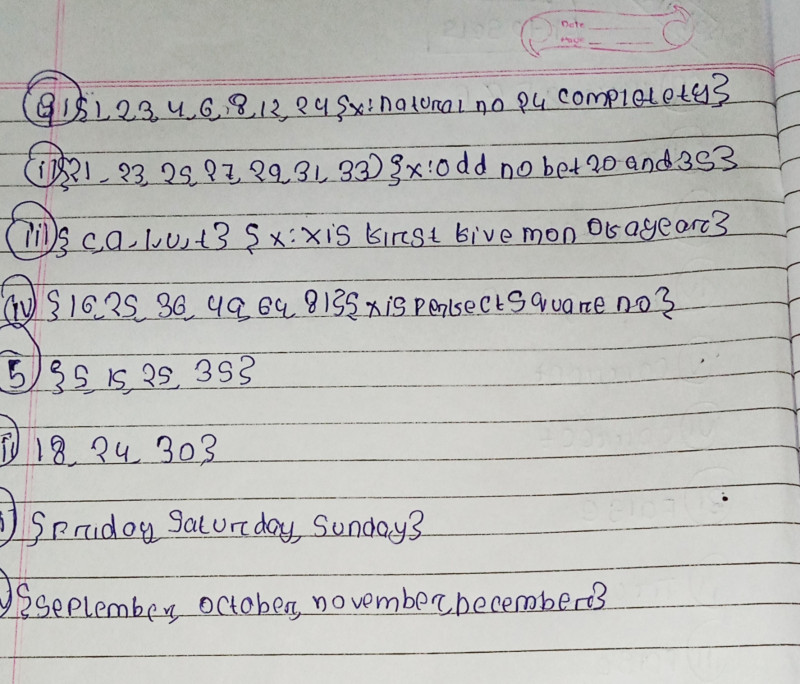 Date
Page
9) i) {1, 2, 3, 4, 6, 8, 12, 24 {x: natural no 24 completety}
ii) {21, 23, 25, 27, 29, 31, 33) {x: odd no bet 20 and 35}
iii) { c, a, l, u, t} {x: x is first five mon of a year}
iv) {16, 25, 36, 49, 64, 81} {x is perfect square no}
5) {5, 15, 25, 35}
ii) 18, 24, 30}
{Friday, Saturday, Sunday}
{September, october, november, December}